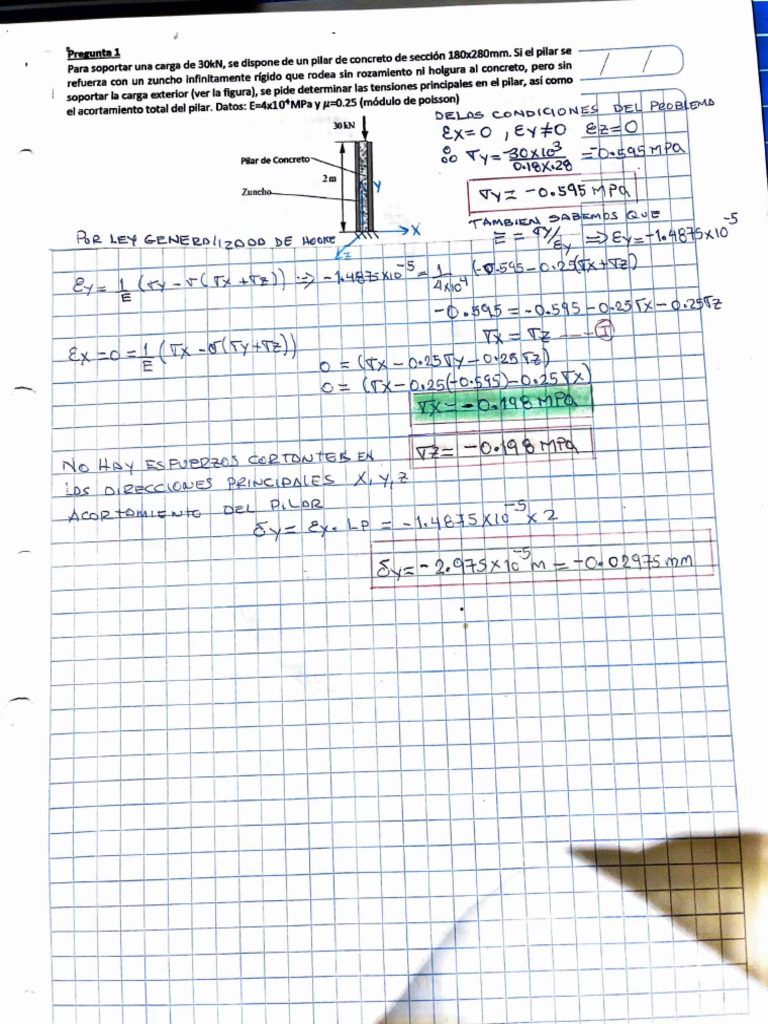 Pregunta 1
Para soportar una carga de 30kN, se dispone de un pilar de concreto de sección 180x280mm. Si el pilar se
refuerza con un zuncho infinitamente rígido que rodea sin rozamiento ni holgura al concreto, pero sin
soportar la carga exterior (ver la figura), se pide determinar las tensiones principales en el pilar, así como
el acortamiento total del pilar. Datos: E=4x10⁴MPa y μ=0.25 (módulo de poisson)
/ /
30 kN
Pilar de Concreto
2 m
Zuncho
Y
X
Z
DE LAS CONDICIONES DEL PROBLEMA
εx=0 , εy≠0 εz=0
∴ σy = -30x10³/0.18x.28 = -0.595 MPa
σy = -0.595 MPa
TAMBIEN SABEMOS QUE
E = σy/εy ⇒ εy=-1.4875x10⁻⁵
POR LEY GENERALIZADA DE HOOKE
εy = 1/E (σy - σ(σx + σz)) ⇒ -1.4875x10⁻⁵ = 1/4x10⁴ (-0.595-0.25(σx+σz)
-0.595 = -0.595-0.25σx-0.25σz
σx = σz --- I
εx = 0 = 1/E (σx - σ(σy+σz))
0 = (σx - 0.25σy - 0.25σz)
0 = (σx - 0.25(-0.595)-0.25σx)
σx = -0.198 MPa
σz = -0.198 MPa
NO HAY ESFUERZOS CORTANTES EN
LAS DIRECCIONES PRINCIPALES X, Y, Z
ACORTAMIENTO DEL PILAR
δy = εy. LP = -1.4875x10⁻⁵x2
δy = -2.975x10⁻⁵m = -0.02975 mm